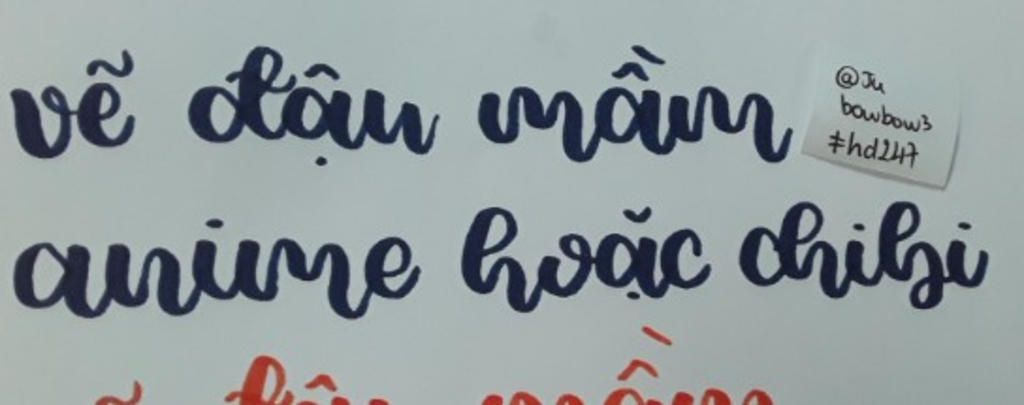 vẽ đậu mầm
@Ju
bowbow3
#hd247
anime hoặc chibi